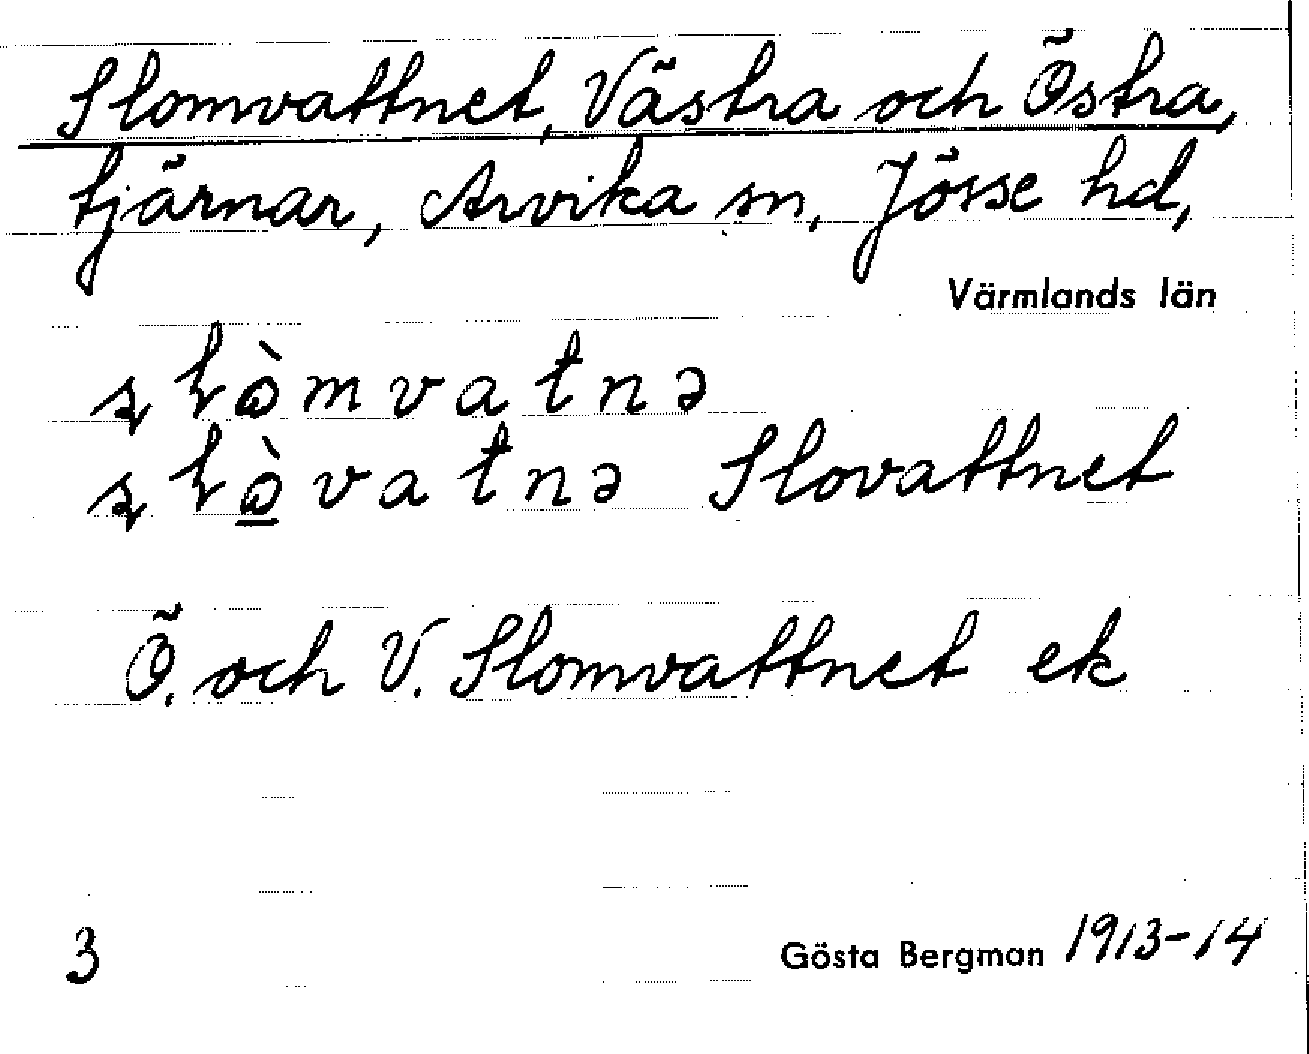 Slomvattnet, Västra och Östra,
tjärnar, Arvika sn, Jösse hd,
Värmlands län
ʂɽɷ̀mvatnə
ʂɽɷ̲̀vatnə Slovattnet
Ö. och V. Slomvattnet ek
3 Gösta Bergman 1913-14